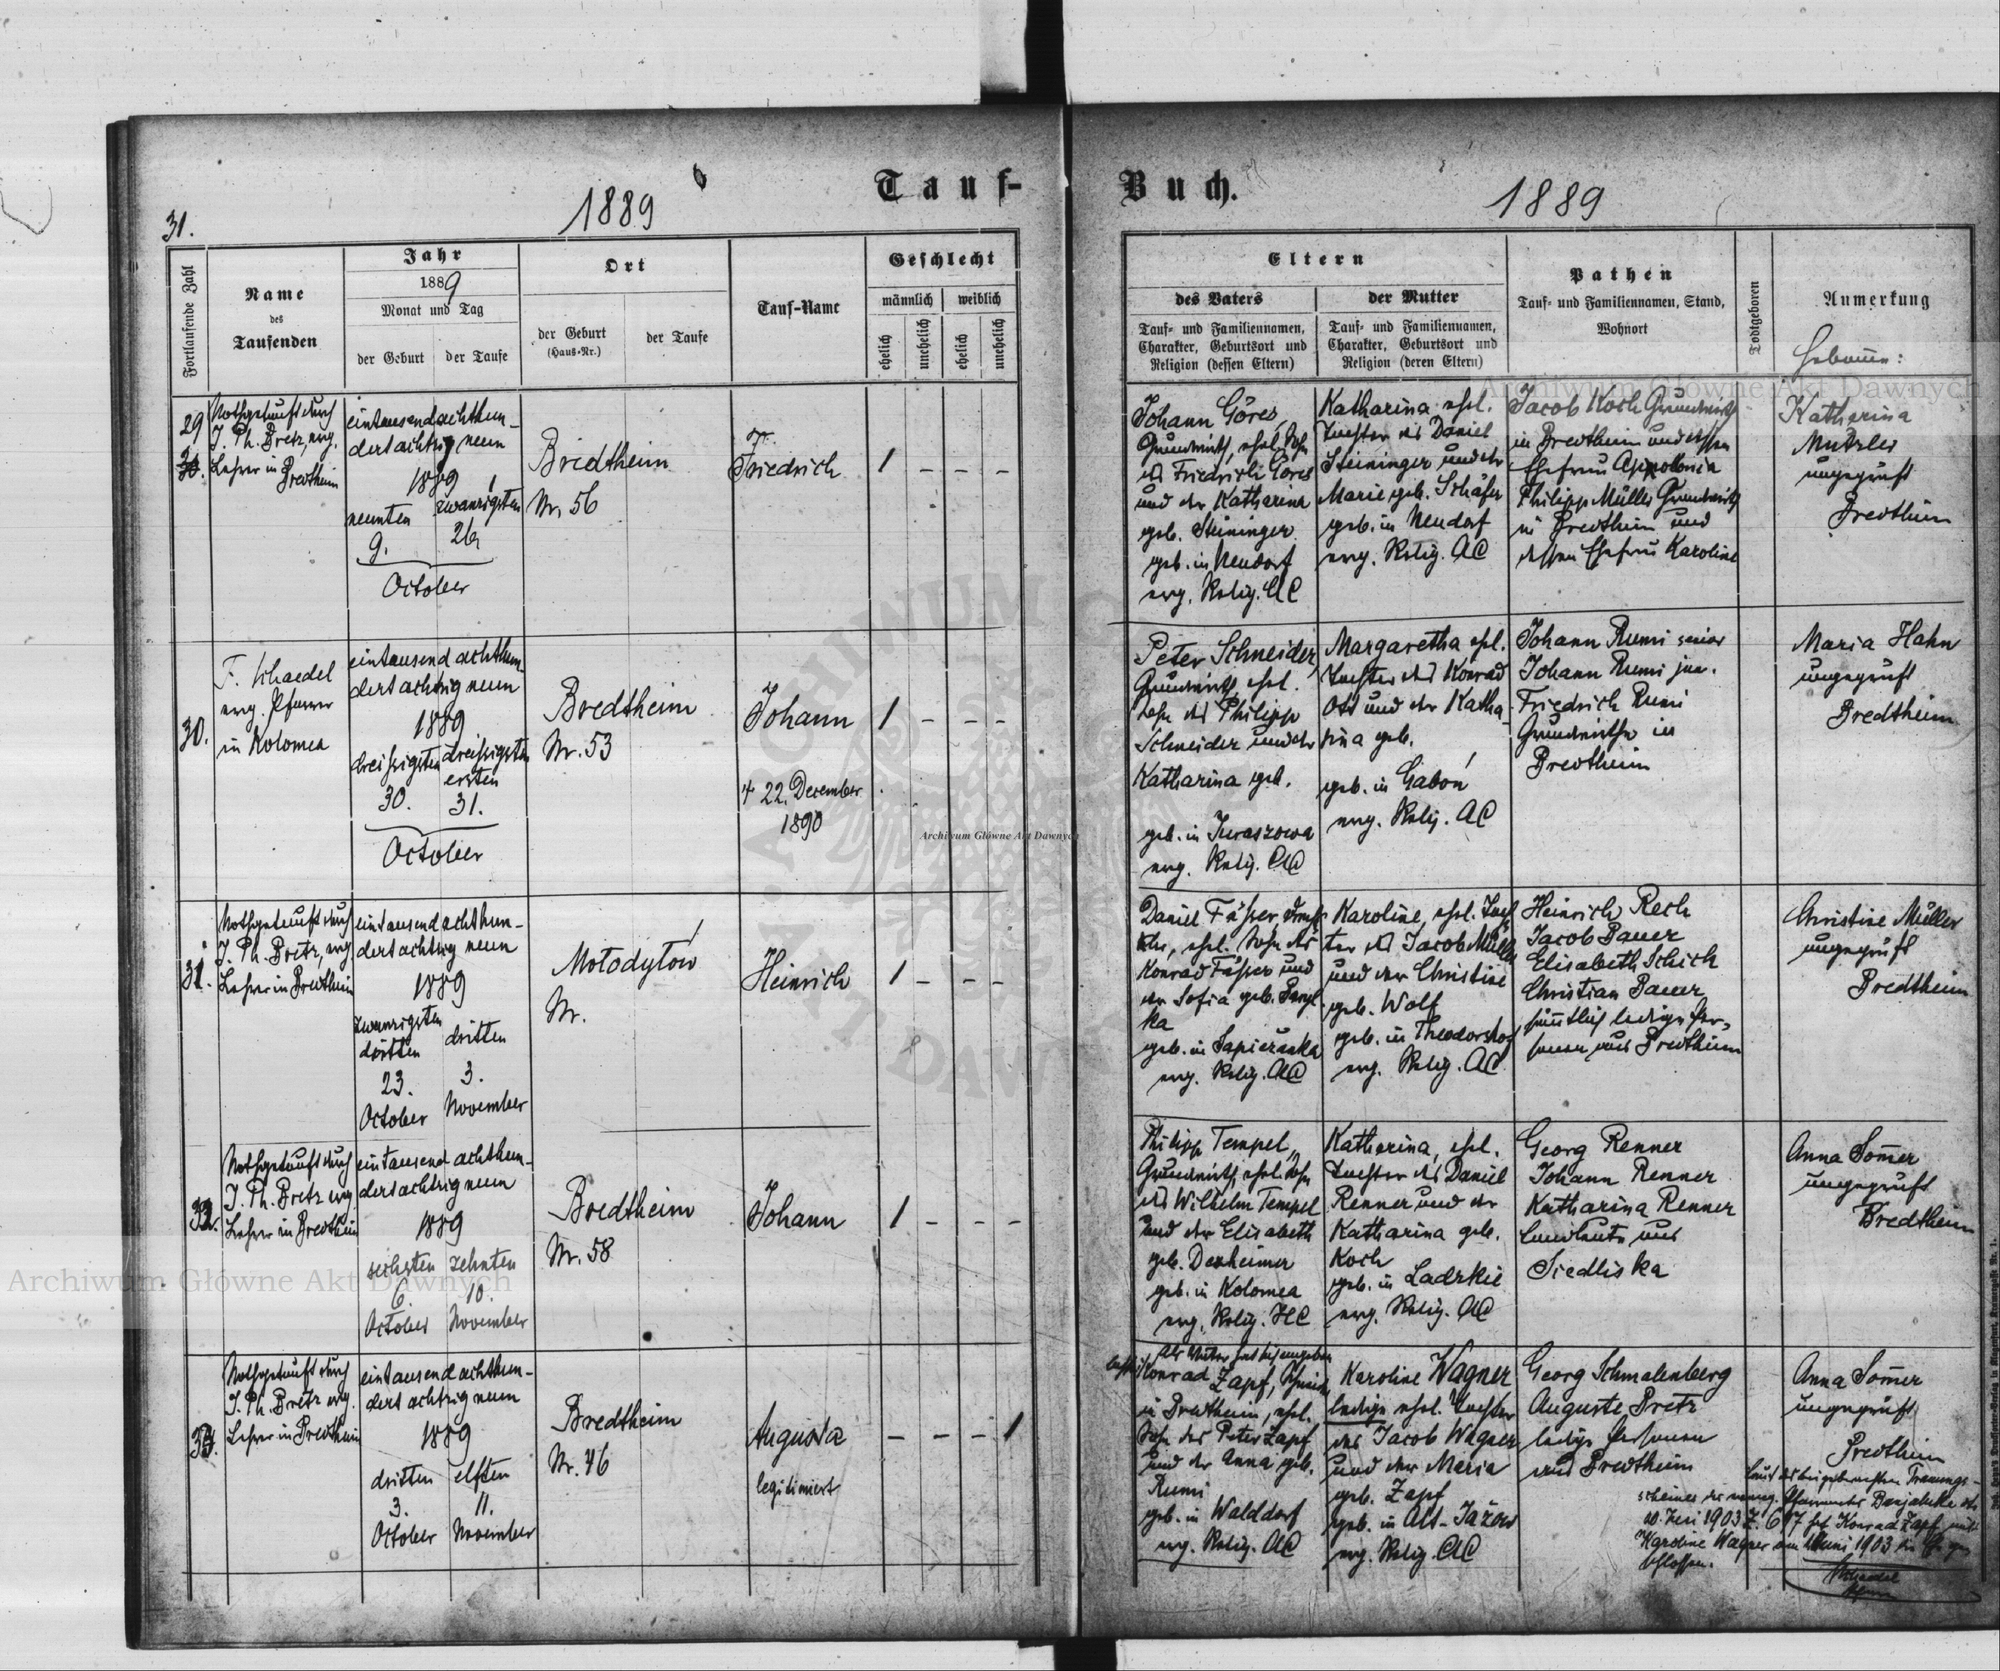 31.
1889
Tauf-
Buch.
1889
Fortlaufende Zahl
Name
des
Taufenden
Jahr
1889
Monat und Tag
der Geburt
der Taufe
Ort
der Geburt
(Haus-Nr.)
der Taufe
Tauf-Name
Geschlecht
männlich
weiblich
ehelich
unehelich
ehelich
unehelich
Eltern
des Vaters
Tauf- und Familiennamen,
Charakter, Geburtsort und
Religion (dessen Eltern)
der Mutter
Tauf- und Familiennamen,
Charakter, Geburtsort und
Religion (deren Eltern)
Pathen
Tauf- und Familiennamen, Stand,
Wohnort
Todtgeboren
Anmerkung
Hebamme:
29
Nothgetauft durch
J. Ph. Bretz, evg.
Lehrer in Bredtheim
eintausendachthun-
dertachtzig neun
1889
neunten
zwanzigsten
9.
October
Bredtheim
Nr. 56
Friedrich
1 - - -
Johann Göres,
Grundwirth, ehel. Sohn
des Friedrich Göres
und der Katharina
geb. Steininger
geb. in Neudorf
evg. Relig. AC
Katharina ehel.
Tochter des Daniel
Steininger und der
Marie geb. Schäfer
geb. in Neudorf
evg. Relig. AC
Jacob Koch Grundwirth
in Bredtheim und dessen
Ehefrau Appolonia
Philipp Müller Grundwirth
in Bredtheim und
dessen Ehefrau Karoline
Katharina
Metzler
ungeprüft
Bredtheim
30.
F. Schaedel
evg. Pfarrer
in Kolomea
eintausend achthun-
dertachtzig neun
1889
dreissigsten
dreissigsten
ersten
30.
31.
October
Bredtheim
Nr. 53
Johann
† 22. December
1890
1 - - -
Peter Schneider,
Grundwirth, ehel.
Sohn des Philipp
Schneider und der
Katharina geb.
geb. in Juraszowa
evg. Relig. AC
Margaretha ehel.
Tochter des Konrad
Ott und der Katha-
rina geb.
geb. in Gaboń
evg. Relig. AC
Johann Rumi senior
Johann Rumi jun.
Friedrich Rumi
Grundwirthe in
Bredtheim
Maria Hahn
ungeprüft
Bredtheim
31.
Nothgetauft durch
J. Ph. Bretz, evg.
Lehrer in Bredtheim
eintausend achthun-
dertachtzig neun
1889
zwanzigsten
dritten
dritten
23.
3.
October
November
Mołodyłów
Nr.
Heinrich
1 - - -
Konrad Fässer und
der Sofia geb.
ka
geb. in Sapieżanka
evg. Relig. AC
Karoline, ehel. Toch-
ter des Jacob Müller
und der Christine
geb. Wolf
geb. in Theodorshof
evg. Relig. AC
Heinrich Rech
Jacob Bauer
Elisabeth Schick
Christian Bauer
sämtlich ledige Per-
sonen aus Bredtheim
Christine Müller
ungeprüft
Bredtheim
32.
Nothgetauft durch
J. Ph. Bretz evg.
Lehrer in Bredtheim
eintausend achthun-
dertachtzig neun
1889
sechsten
zehnten
6.
10.
October
November
Bredtheim
Nr. 58
Johann
1 - - -
Philipp Tempel,
Grundwirth, ehel. Sohn
des Wilhelm Tempel
und der Elisabeth
geb. Dexheimer
geb. in Kolomea
evg. Relig. HC
Katharina, ehel.
Tochter des Daniel
Renner und der
Katharina geb.
Koch
geb. in Ladzkie
evg. Relig. AC
Georg Renner
Johann Renner
Katharina Renner
Landleute aus
Siedliska
Anna Sommer
ungeprüft
Bredtheim
33.
Nothgetauft durch
J. Ph. Bretz evg.
Lehrer in Bredtheim
eintausend achthun-
dert achtzig neun
1889
dritten
elften
3.
11.
October
November
Bredtheim
Nr. 46
Augusta
legitimiert
- - - 1
Als Vater hat sich angeben
Konrad Zapf,
in Bredtheim, ehel.
Sohn des Peter Zapf
und der Anna geb.
Rumi
geb. in Walddorf
evg. Relig. AC
Karoline Wagner
ledige ehel. Tochter
des Jacob Wagner
und der Maria
geb. Zapf
geb. in Alt-Jażow
evg. Relig. AC
Georg Schmalenberg
Auguste Bretz
ledige Personen
aus Bredtheim
Anna Sommer
ungeprüft
Bredtheim
Laut des beigebrachten Trauungs-
scheines des evang. Pfarramtes Banjaluka
Juni 1903 Z. 617 hat Konrad Zapf mit
Karoline Wagner am Juni 1903 die Ehe ge-
schlossen.
Schaedel
Archiwum Główne Akt Dawnych
Archiwum Główne Akt Dawnych
Archiwum Główne Akt Dawnych